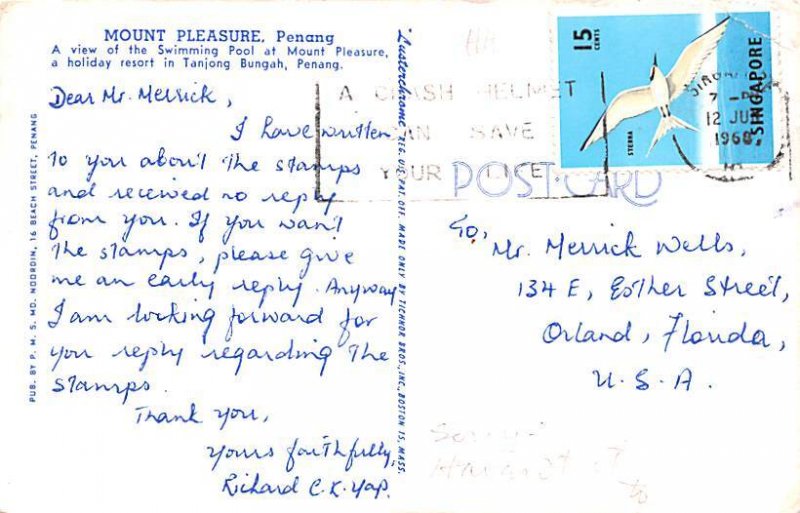 MOUNT PLEASURE, Penang
A view of the Swimming Pool at Mount Pleasure,
a holiday resort in Tanjong Bungah, Penang.
Dear Mr. Merrick,
I have written
to you about the stamps
and received no reply
from you. If you want
the stamps, please give
me an early reply. Anyway
I am looking forward for
you reply regarding the
stamps.
Thank you,
Yours faithfully,
Richard C.K. Yap.
PUB. BY P. M. S. MD. NOORDIN, 16 BEACH STREET, PENANG
"Lusterchrome" REG. U.S. PAT. OFF. MADE ONLY BY TICHNOR BROS., INC., BOSTON 15, MASS.
A CRASH HELMET
CAN SAVE
YOUR LIFE
15
CENTS
STERNA
SINGAPORE
SINGA
7
12 JU
1968
POST CARD
To,
Mr. Merrick Wells,
134 E, Esther Street,
Orland, Florida,
U.S.A.